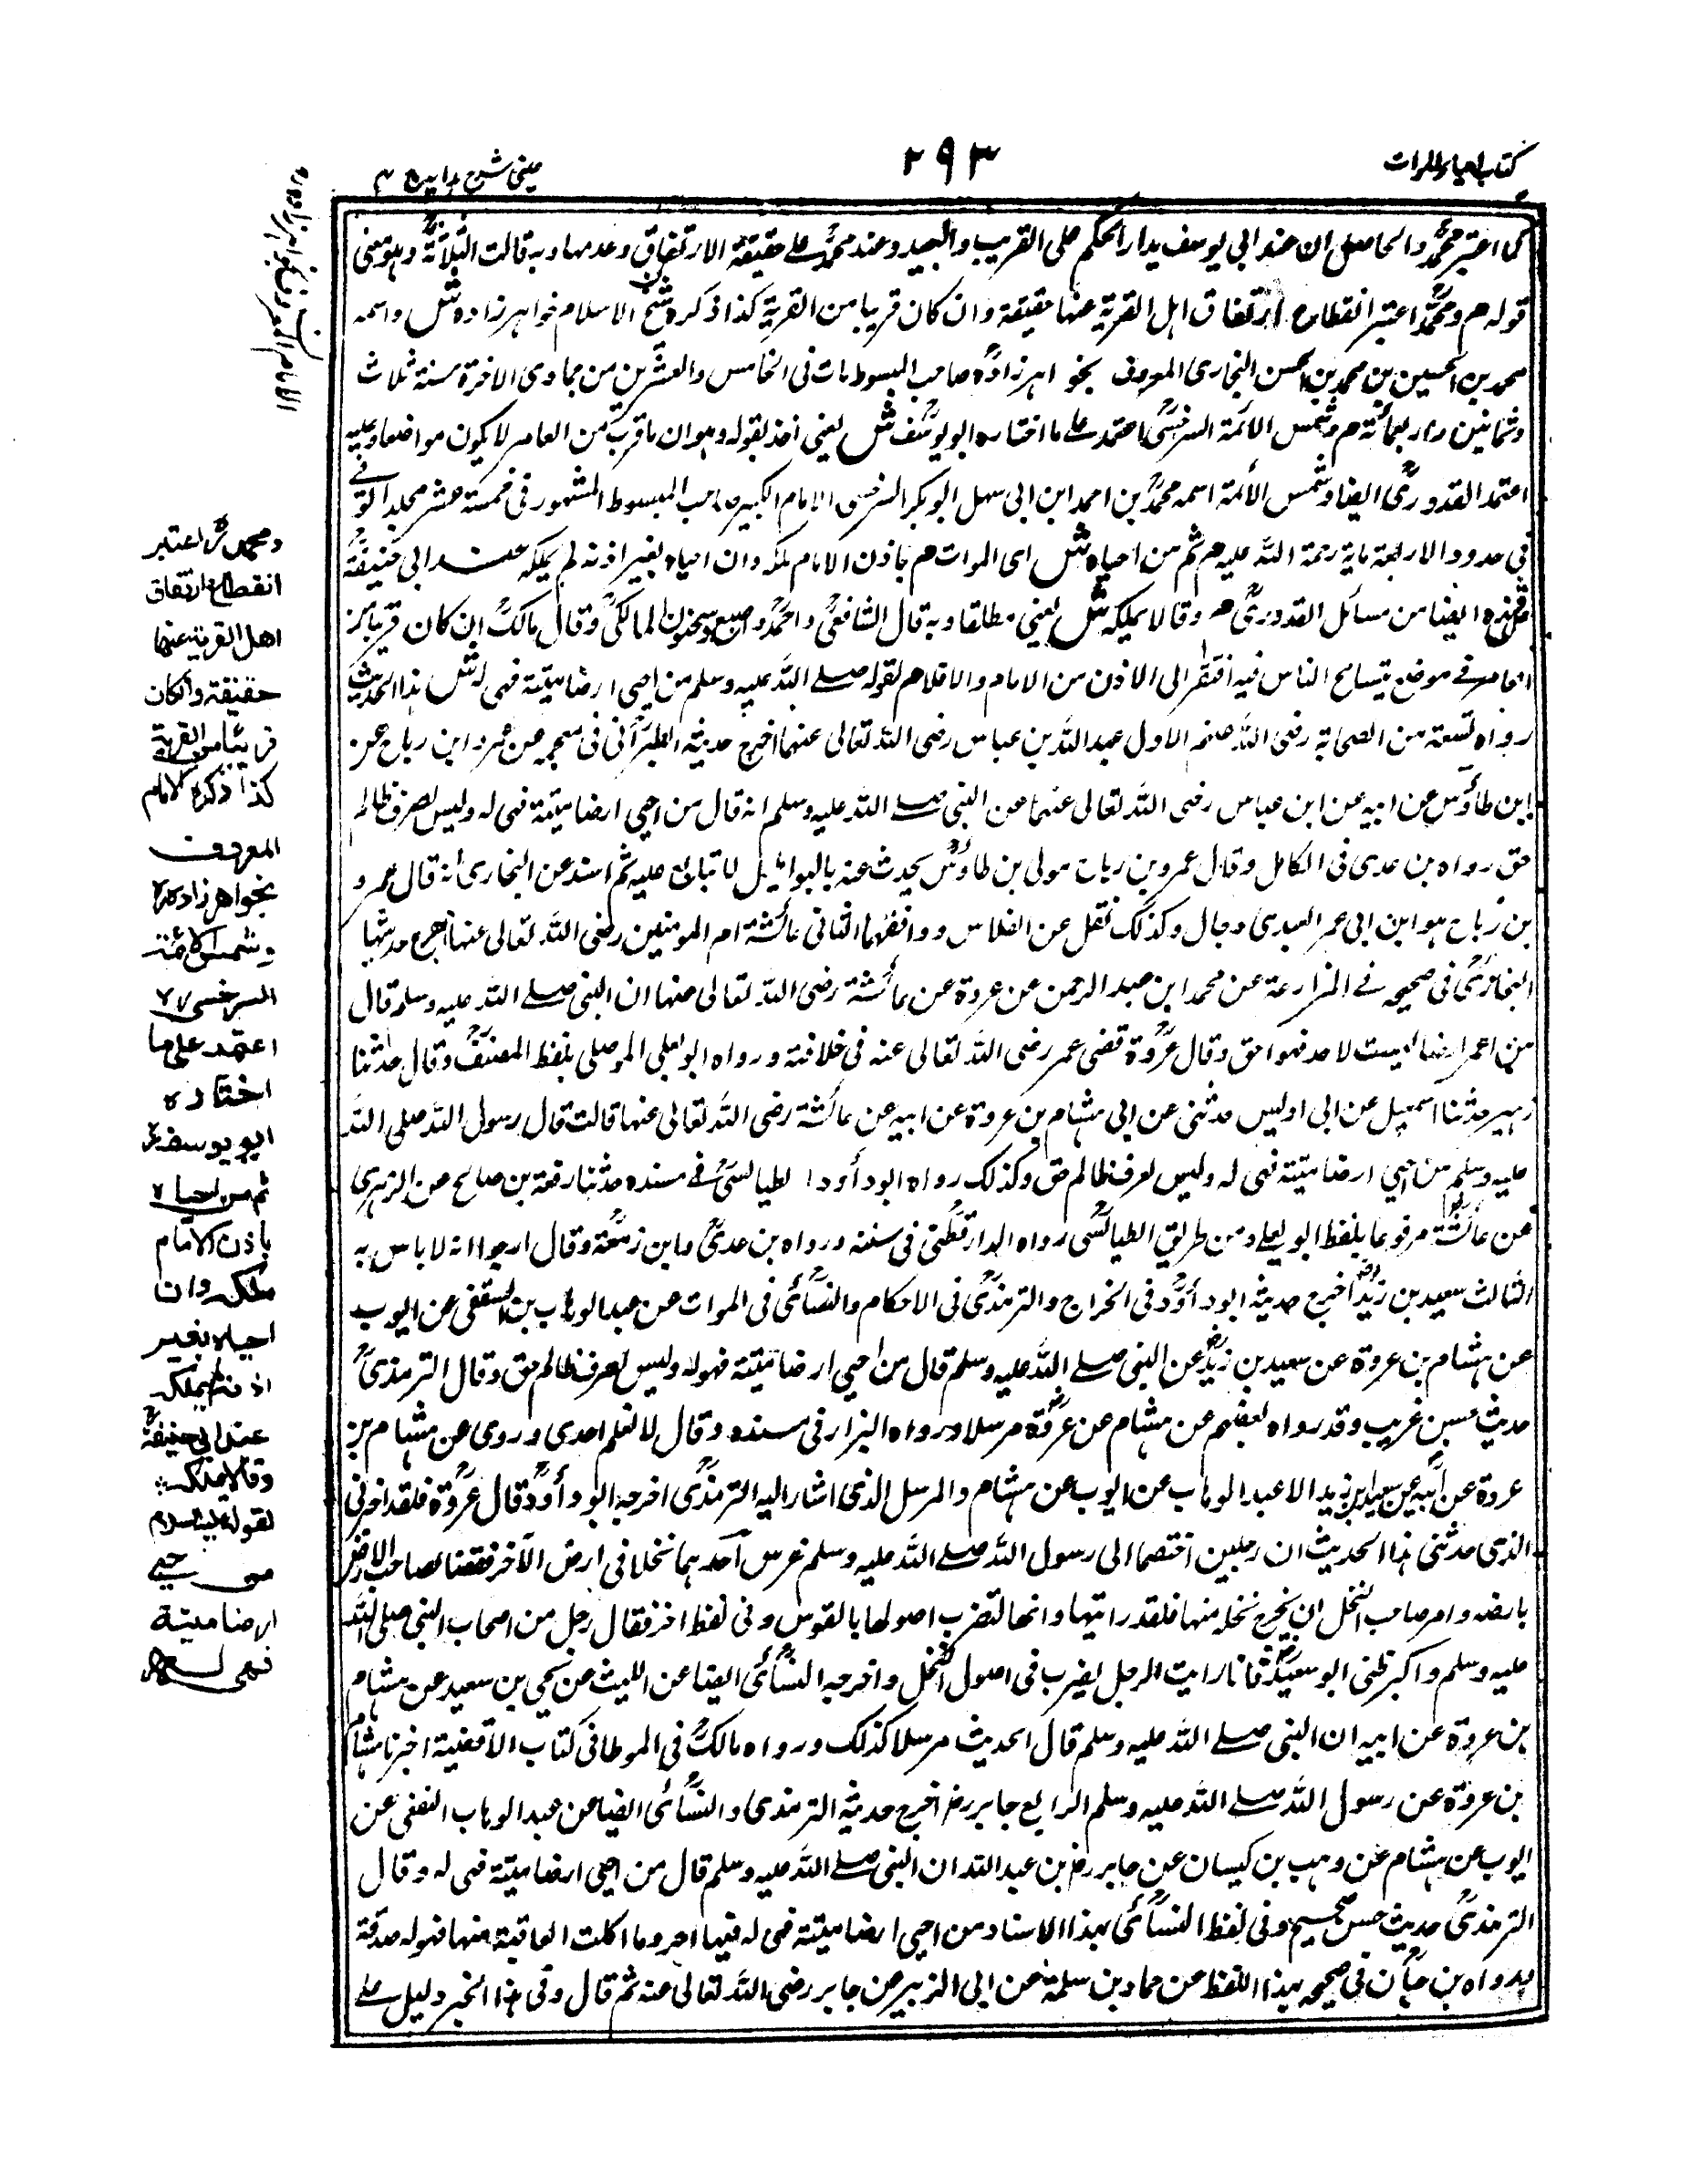 كتاب احياء الموات
٢٩٣
عينى شرح هدايه ج ٣
كما اعتبر محمدؒ والحاصل ان عند ابى يوسف يدار الحكم على القريب والبعيد وعند محمدؒ على حقيقة الارتفاق وعدمها وبه قالت الثلاثةؒ وهو معنى
قوله م ومحمدؒ اعتبر انقطاع ارتفاق اهل القرية عنها حقيقة وان كان قريبا من القرية كذا ذكره شيخ الاسلام خواهر زاده ش واسمه
محمد بن الحسين بن محمد بن الحسن البخارى المعروف بخواهر زادهؒ صاحب المبسوط مات فى الخامس والعشرين من جمادى الاخرة سنة ثلاث
وثمانين واربعمائة م وشمس الائمة السرخسىؒ اعتمد على ما اختاره ابو يوسفؒ ش يعنى اخذ بقوله وهو ان ما قرب من العامر لا يكون مواضعا وعليه
اعتمد القدورىؒ ايضا وشمس الائمة اسمه محمدؒ بن احمد ابن ابى سهل ابو بكر السرخسى الامام الكبير صاحب المبسوط المشهور فى خمسة عشر مجلدا توفى
فى حدود الاربعة ماية رحمة الله عليه م ثم من احياه ش اى الموات م باذن الامام ملكه وان احياه بغير اذنه لم يملكه عند ابى حنيفةؒ
ش هذه ايضا من مسائل القدورىؒ م وقالا يملكه ش يعنى مطلقا وبه قال الشافعىؒ واحمدؒ واصبع وسحنون المالكىؒ وقال مالكؒ ان كان قريبا من
العامر فى موضع يتسامح الناس فيه افتقر الى الاذن من الامام والا فلا م لقوله صلى الله عليه وسلم من احيى ارضا ميتة فهى له ش هذا الحديث
رواه تسعة من الصحابة رضى الله عنهم الاول عبد الله بن عباس رضى الله تعالى عنهما اخرج حديثه الطبرانى فى معجمه عن عمرو ابن رباح عن
ابن طاؤس عن ابيه عن ابن عباس رضى الله تعالى عنهما عن النبى صلى الله عليه وسلم انه قال من احيى ارضا ميتة فهى له وليس لعرق ظالم
حق رواه بن عدى فى الكامل وقال عمرو بن رباح مولى بن طاؤس يحدث عنه بالبواطيل لا تبايع عليه ثم اسند عن البخارى انه قال عمرو
بن رباح هو ابن ابى عمر العبدى دجال وكذلك نقل عن الفلاس ووافقهما الثانى عائشة ام المومنين رضى الله تعالى عنها اخرج حديثها
البخارىؒ فى صحيحه فى المزارعة عن محمد ابن عبد الرحمن عن عروة عن عائشة رضى الله تعالى عنها ان النبى صلى الله عليه وسلم قال
من اعمر ارضا ليست لاحد فهو احق وقال عروةؒ قضى عمر رضى الله تعالى عنه فى خلافته ورواه ابو يعلى الموصلى بلفظ المصنفؒ وقال حدثنا
زهير حدثنا اسمعيل عن ابى اويس حدثنى عن ابى هشام بن عروة عن ابيه عن عائشة رضى الله تعالى عنها قالت قال رسول الله صلى الله
عليه وسلم من احيى ارضا ميتة فهى له وليس لعرق ظالم حق وكذلك رواه ابو داؤد الطيالسىؒ فى مسنده حدثنا زمعة بن صالح عن الزهرى
عن عائشةؓ مرفوعا بلفظ ابو يعلى ومن طريق الطيالسى رواه الدارقطنى فى سننه ورواه بن عدىؒ واعله بن زمعة وقال ارجوا انه لا باس به
الثالث سعيد بن زيدؓ اخرج حديثه ابو داؤدؒ فى الخراج والترمذىؒ فى الاحكام والنسائىؒ فى الموات عن عبد الوهاب بن الثقفى عن ايوب
عن هشام بن عروة عن سعيد بن زيدؓ عن النبى صلى الله عليه وسلم قال من احيى ارضا ميتة فهو له وليس لعرق ظالم حق وقال الترمذىؒ
حديث حسن غريب وقد رواه بعضهم عن هشام عن عروةؓ مرسلا ورواه البزار فى مسنده وقال لا نعلم احدى وروى عن هشام بن
عروة عن ابيه عن سعيد بن زيد الا عبد الوهاب عن ايوب عن هشام والمرسل الذى اشار اليه الترمذىؒ اخرجه ابو داؤدؒ قال عروةؒ فلقد اخبرنى
الذى حدثنى هذا الحديث ان رجلين اختصما الى رسول الله صلى الله عليه وسلم غرس احدهما نخلا فى ارض الآخر فقضا لصاحب الارض
بارضه وامر صاحب النخل ان يخرج نخله منها فلقد رايتها وانها لتضرب اصولها بالقوس وفى لفظ اخر فقال رجل من اصحاب النبى صلى الله
عليه وسلم واكبر ظنى ابو سعيدؓ فانا رايت الرجل يضرب فى اصول النخل واخرجه النسائىؒ ايضا عن الليث عن يحيى بن سعيد عن هشام
بن عروة عن ابيه ان النبى صلى الله عليه وسلم قال الحديث مرسلا كذلك ورواه مالكؒ فى الموطا فى كتاب الاقضية اخبرنا هشام
بن عروة عن رسول الله صلى الله عليه وسلم الرابع جابر رض اخرج حديثه الترمذى والنسائىؒ ايضا عن عبد الوهاب الثقفى عن
ايوب عن هشام عن وهب بن كيسان عن جابر رض بن عبد الله ان النبى صلى الله عليه وسلم قال من احيى ارضا ميتة فهى له وقال
الترمذىؒ حديث حسن صحيح وفى لفظ النسائىؒ بهذا الاسناد من احيى ارضا ميتة فهى له فيها اجر وما اكلت العافية منها فهو له صدقة
ورواه بن حبان فى صحيحه بهذا اللفظ عن حماد بن سلمة عن ابى الزبير عن جابر رضى الله تعالى عنه ثم قال وفى هذا الخبر دليل على
ومحمدؒ اعتبر
انقطاع ارتفاق
اهل القرية عنها
حقيقة وان كان
قريبا من القرية
كذا ذكره الامام
المعروف
بخواهر زادهؒ
وشمس الائمة
السرخسىؒ
اعتمد على ما
اختاره
ابو يوسفؒ
ثم من احياه
باذن الامام
ملكه وان
احياه بغير
اذنه لم يملكه
عند ابى حنيفةؒ
وقالا يملكه
لقوله عليه السلام
من احيى
ارضا ميتة
فهى له